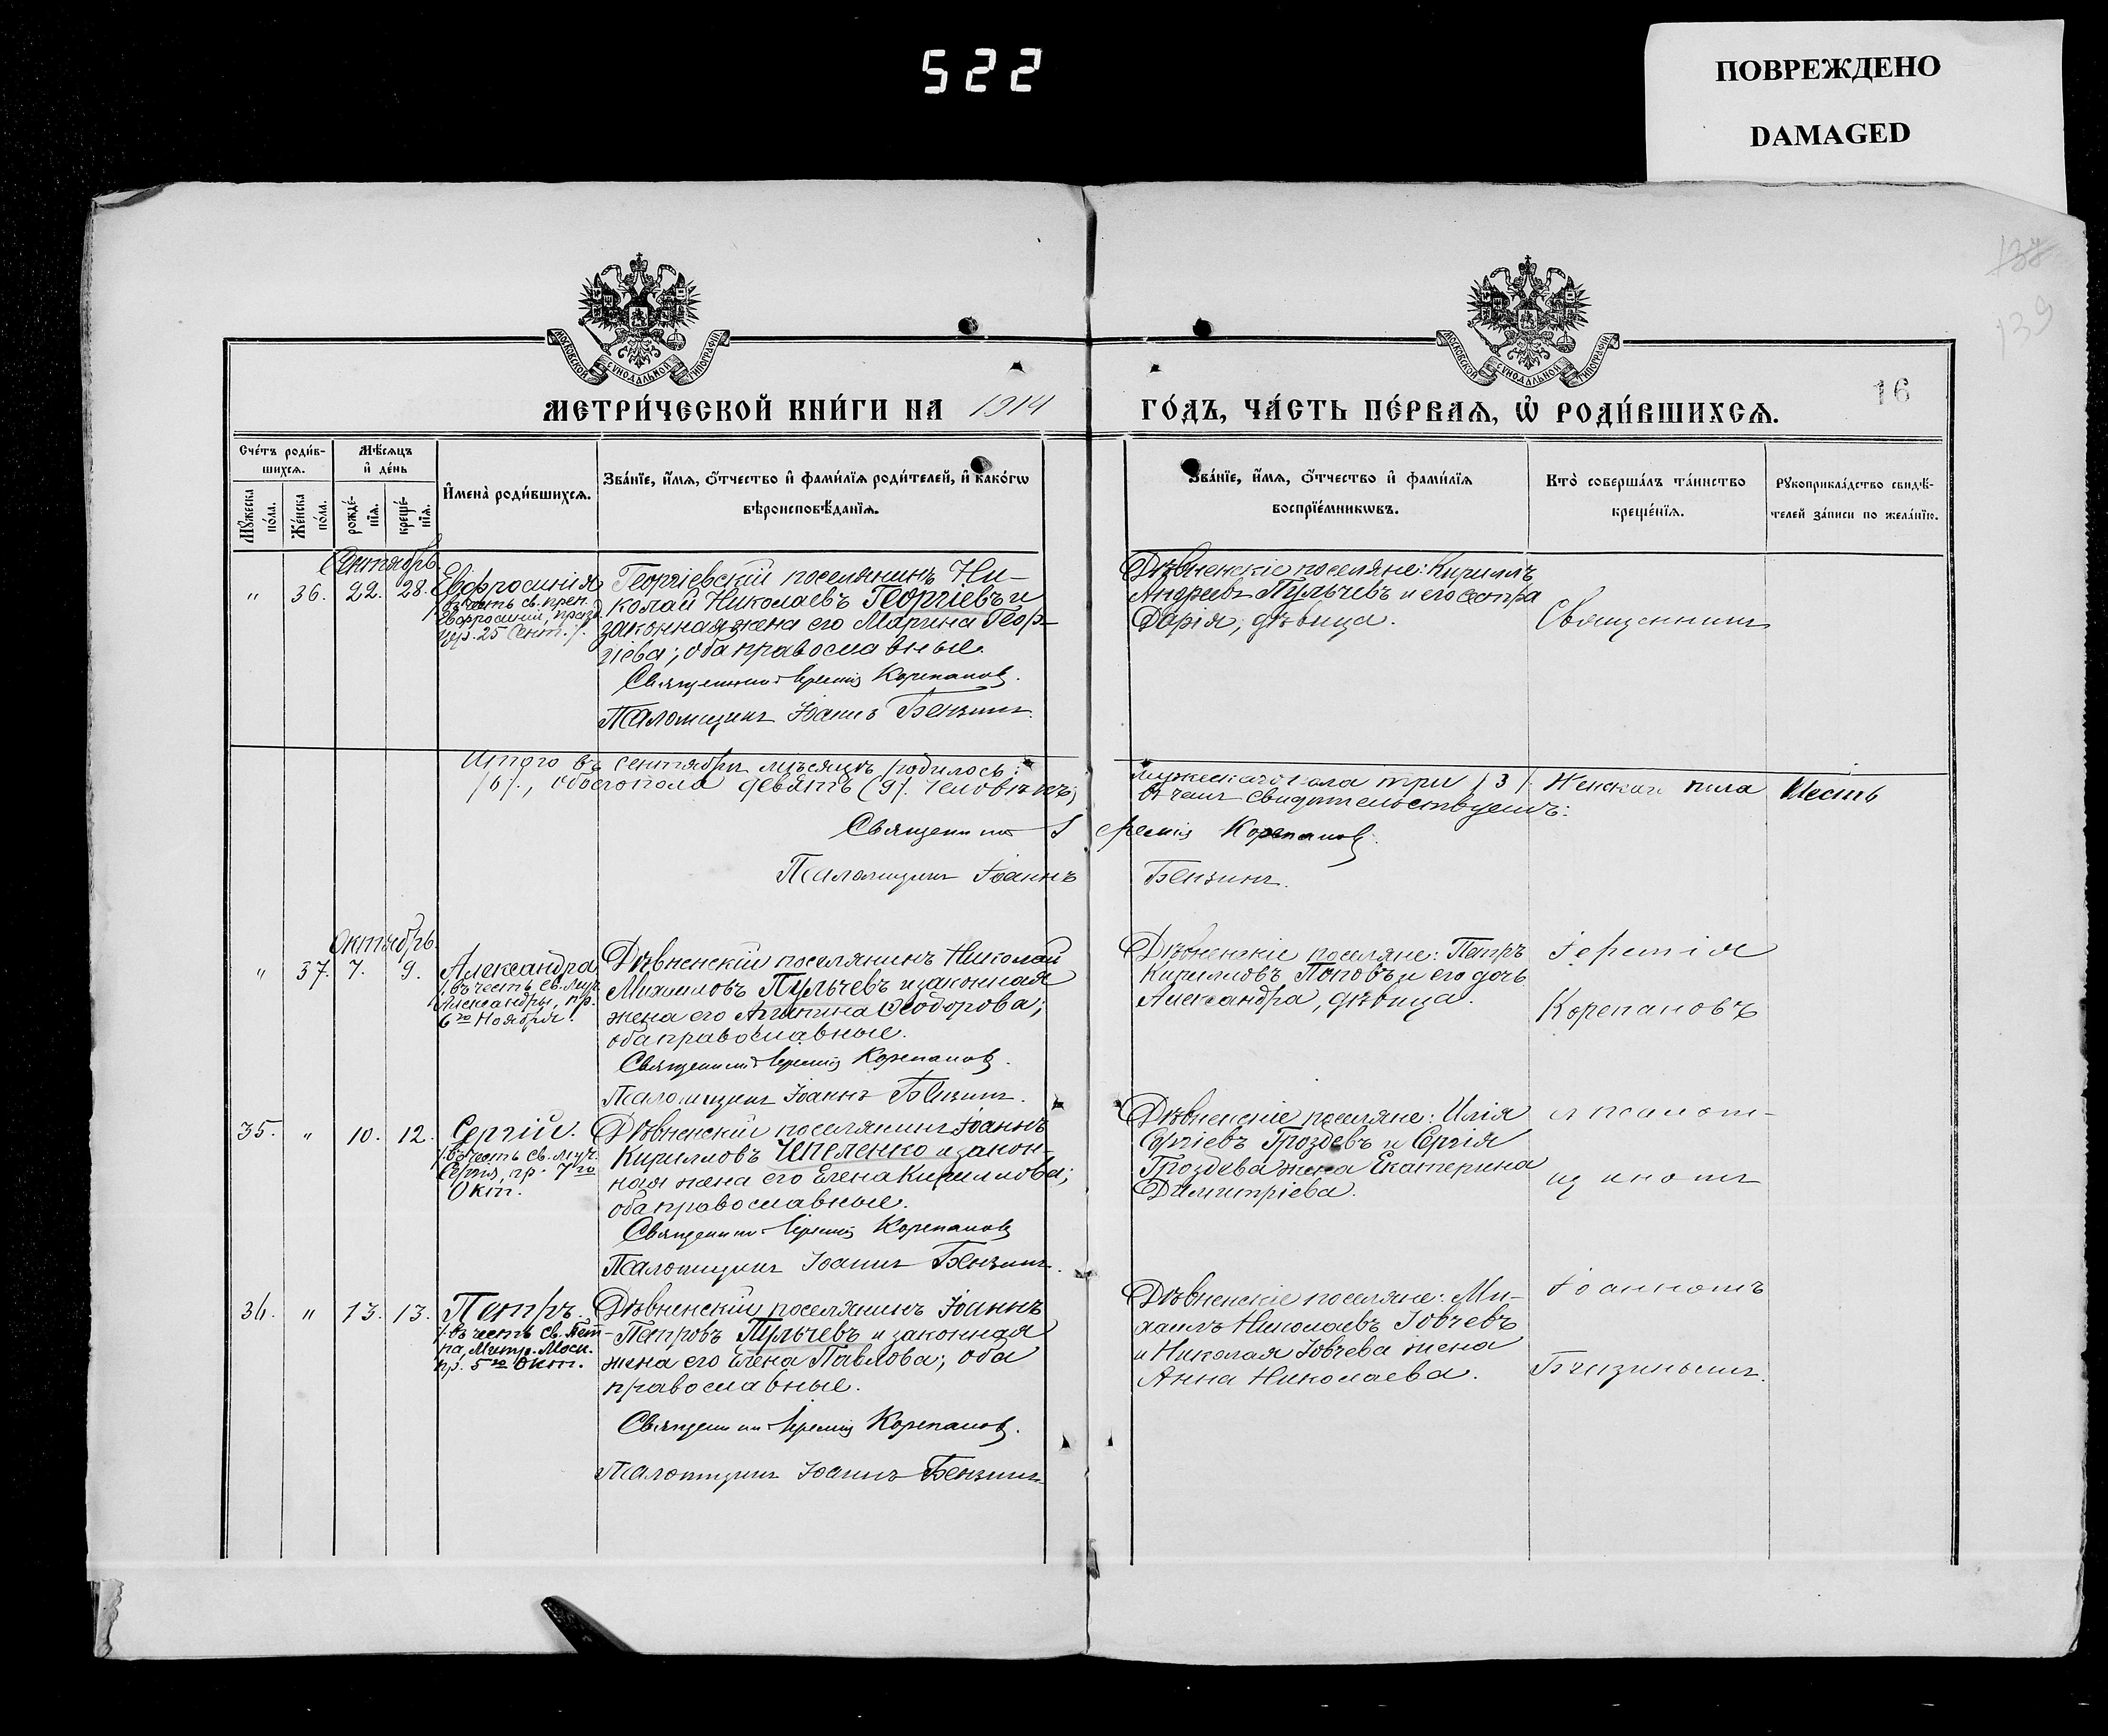 522
ПОВРЕЖДЕНО
DAMAGED
138
139
МОСКОВСКОЙ СѴНОДАЛЬНОЙ ТИПОГРАФІИ
МОСКОВСКОЙ СѴНОДАЛЬНОЙ ТИПОГРАФІИ
16
МЕТРИ́ЧЕСКОЙ КНИ́ГИ НА 1914 ГО́ДЪ, ЧА́СТЬ ПЕ́РВАѦ, Ѡ҆ РОДИ́ВШИХСѦ.
Сче́тъ роди́в-
шихсѧ.
Мꙋ́жеска по́ла.
Же́нска по́ла.
Мѣ́сѧцъ и҆ де́нь
рожде́-
нїѧ.
креще́-
нїѧ.
И҆мена̀ роди́вшихсѧ.
Зва́нїе, и҆́мѧ, ѻ҆́тчество и҆ фами́лїѧ роди́телей, и҆ како́гѡ
вѣроисповѣ́данїѧ.
Зва́нїе, и҆́мѧ, ѻ҆́тчество и҆ фами́лїѧ
воспрїе́мникѡвъ.
Кто̀ соверша́лъ та́инство
креще́нїѧ.
Рꙋкоприкла́дство свидѣ́-
телей за́писи по жела́нїю.
Сентябрь.
" 36. 22. 28.
Евфросинія
/въ честь св. преп.
Евфросиніи, празд.
цер. 25 Сент./.
Георгіевскій поселянинъ Ни-
колай Николаевъ Георгіевъ и
законная жена его Марина Геор-
гіева; оба православные.
Священникъ Іеремія Корепановъ.
Псаломщикъ Іоаннъ Бензинъ.
Дѣвненскіе поселяне: Кириллъ
Андреевъ Пулычевъ и его сестра
Дарія, дѣвица.
Священникъ
Итого въ сентябрѣ мѣсяцѣ родилось: мужескаго пола три /3/. Женскаго пола шесть
/6/., обоего пола девять (9). человѣкъ; въ чемъ свидѣтельствуемъ:
Священникъ Іеремія Корепановъ.
Псаломщикъ Іоаннъ Бензинъ.
Октябрь.
" 37. 7. 9.
Александра
/въ честь св. муч.
Александры, пр.
6го Ноября.
Дѣвненскій поселянинъ Николай
Михаиловъ Пулычевъ и законная
жена его Агипина Ѳеодорова;
оба православные.
Священникъ Іеремія Корепановъ.
Псаломщикъ Іоаннъ Бензинъ.
Дѣвненскіе поселяне: Петръ
Кирилловъ Поповъ и его дочь
Александра, дѣвица.
Іеремія
Корепановъ
35. " 10. 12.
Сергій.
/въ честь св. муч.
Сергія, пр. 7го
Окт.
Дѣвненскій поселянинъ Іоаннъ
Кирилловъ Чепеленко и закон-
ная жена его Елена Кириллова;
оба православные.
Священникъ Іеремія Корепановъ
Псаломщикъ Іоаннъ Бензинъ.
Дѣвненскіе поселяне: Илія
Сергіевъ Гроздевъ и Сергія
Гроздева жена Екатерина
Димитріева.
и псалом-
щикомъ
36. " 13. 13.
Петръ.
/въ честь св. Пет-
ра, Митр. Моск.
пр. 5го Окт.
Дѣвненскій поселянинъ Іоаннъ
Петровъ Пулычевъ и законная
жена его Елена Павлова; оба
православные.
Священникъ Іеремія Корепановъ.
Псаломщикъ Іоаннъ Бензинъ
Дѣвненскіе поселяне: Ми-
хаилъ Николаевъ Іовчевъ
и Николая Іовчева жена
Анна Николаева.
Іоанномъ
Бензинымъ.